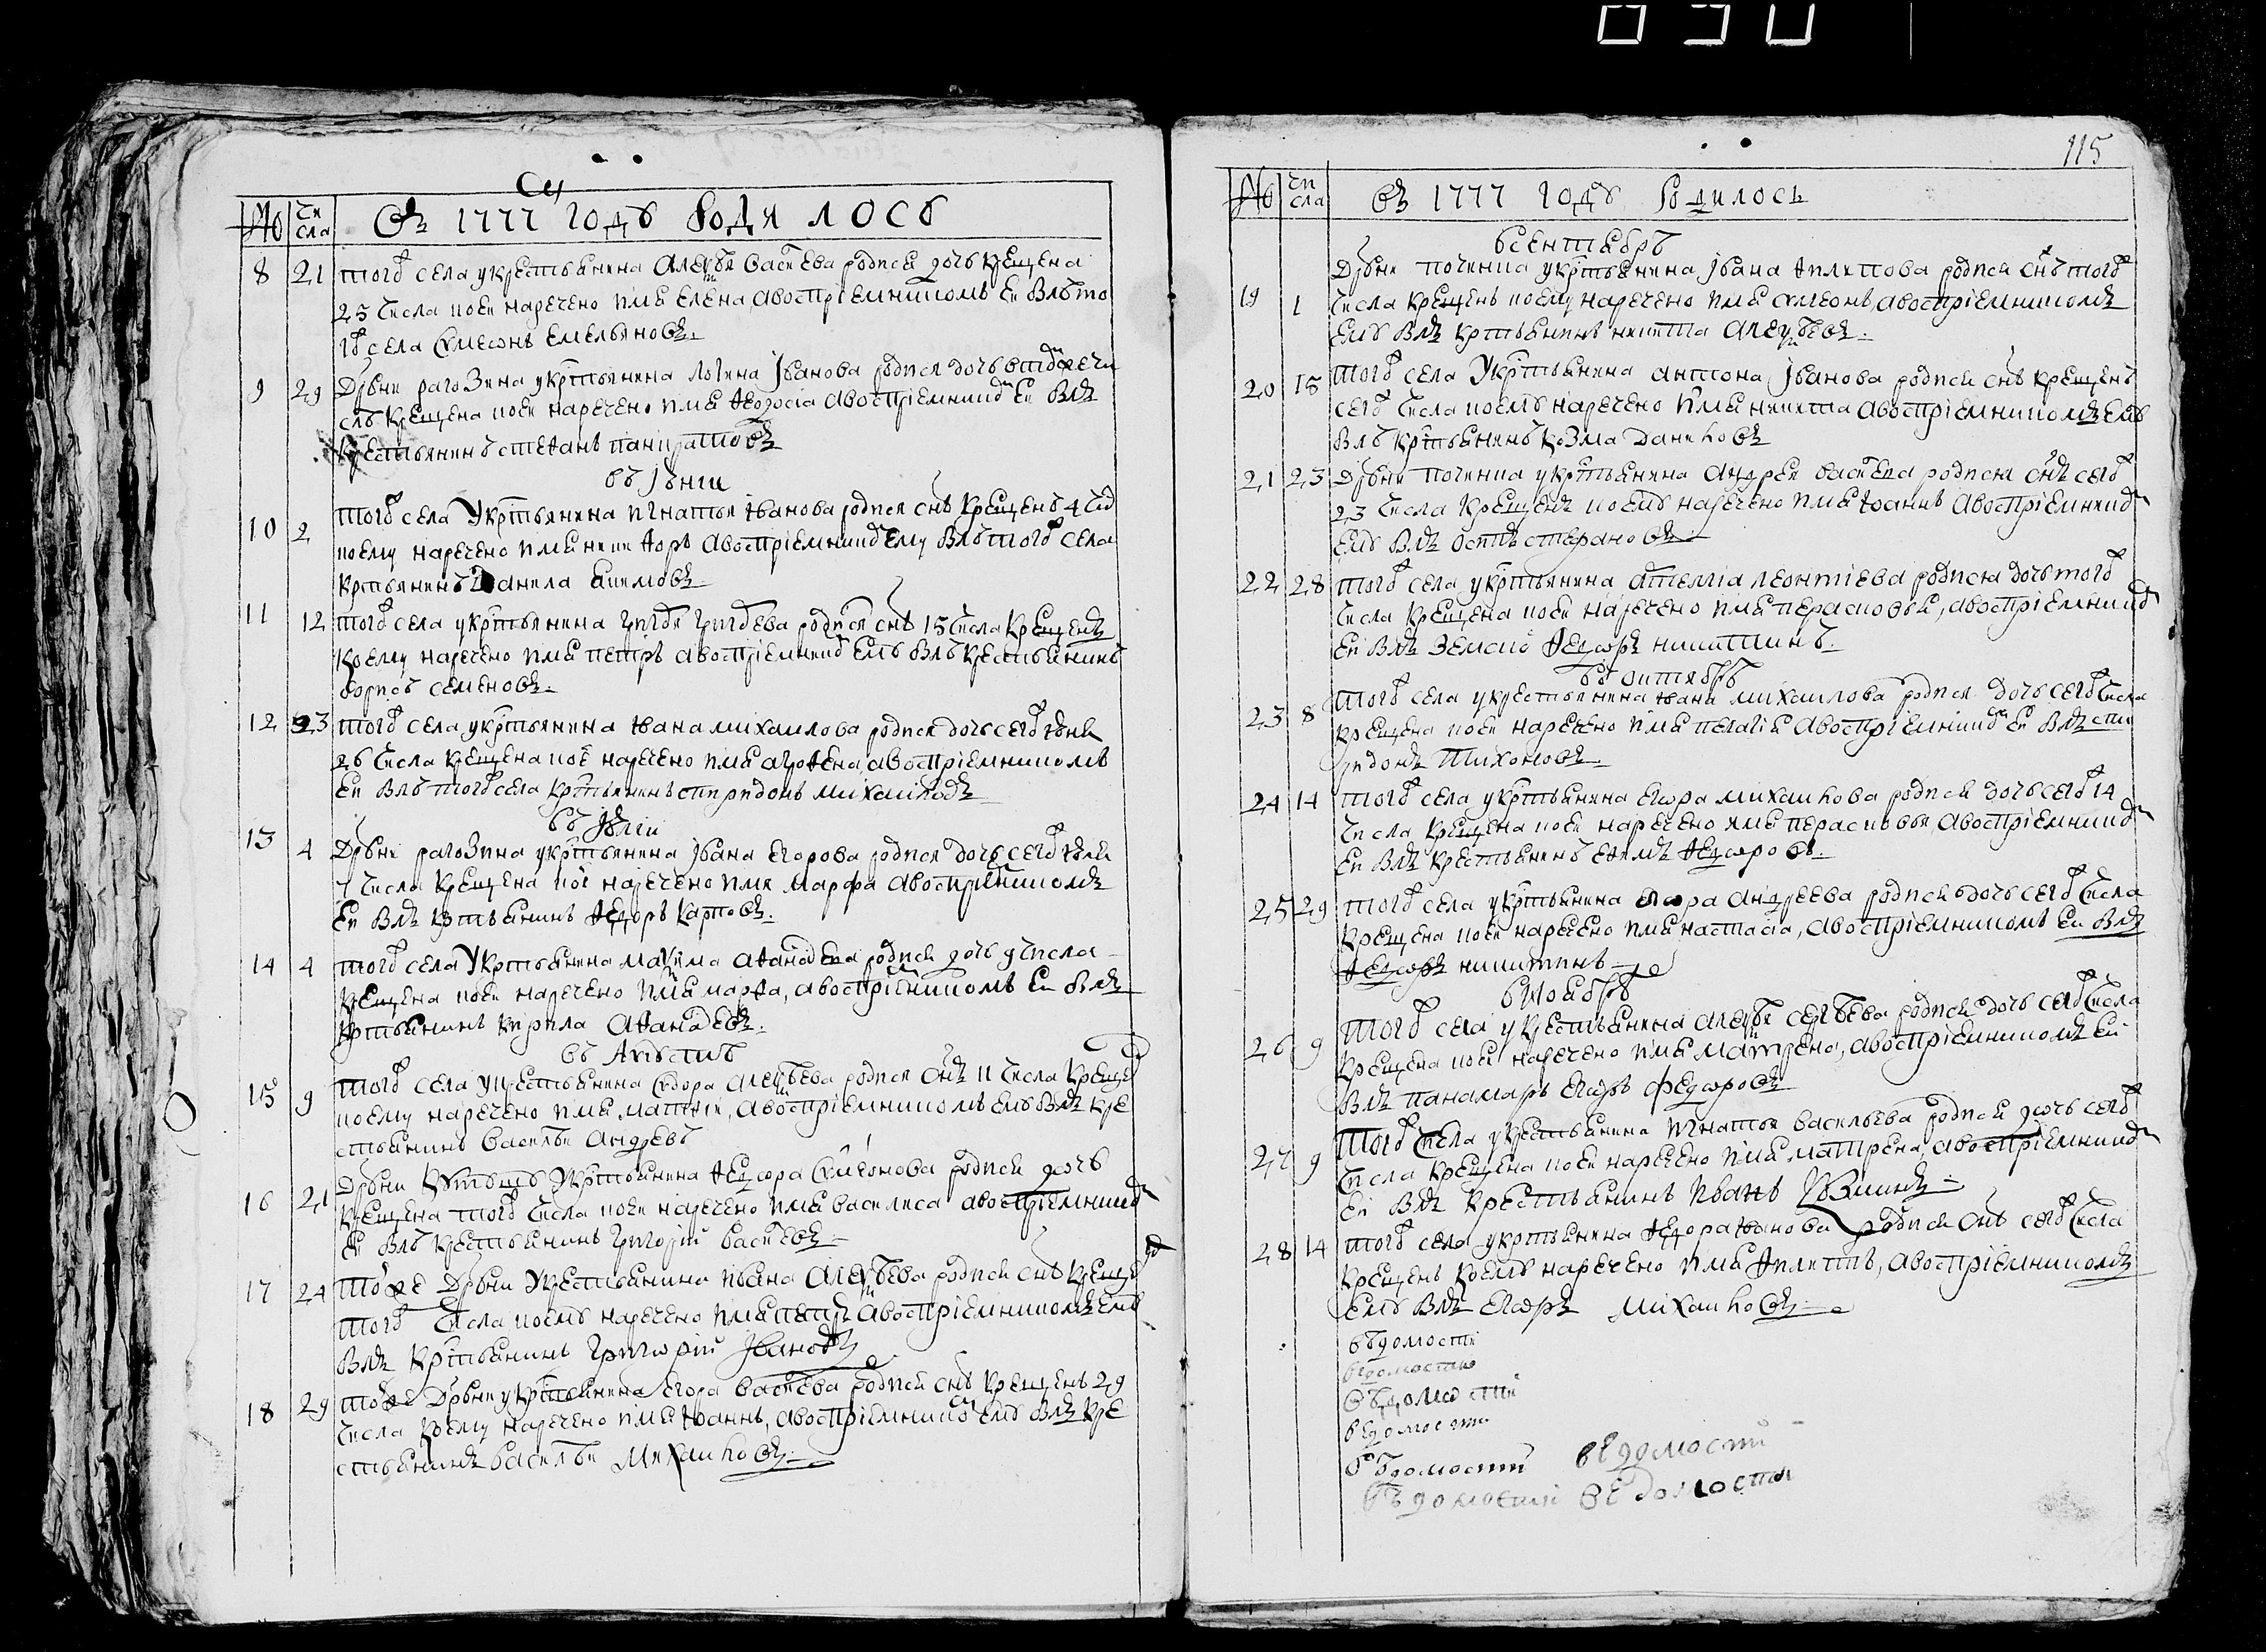 № Чи сла Въ 1777 годѣ родилось
8 21 того села у крестьянина Алеѯѣя Василева родися дочь крещена
25 числа коей наречено имя Елена, а воспрїемникомъ ей былъ то
го села Сѵмеонъ Емельяновъ.
9 29 Дрвни рагозина у крстьянина Логина Іванова родися дочь
крещена коей наречено имя Ѳеодосіа а воспрїемникомъ ей былъ
крестьянинъ Стеѳанъ Панкратовъ
въ Іюнїи
10 2 того села у крстьянина Игнатья Іванова родися снъ крещенъ 4 чис
коему наречено имя Никиѳоръ а воспрїемником ему былъ того села
крстьянинъ Данила Екимовъ
11 12 того села у крстьянина Григоря Григорева родися снъ 15 числа крещенъ
коему наречено имя Петръ а воспрїемником емѹ былъ крестьянинъ
Борисъ Семеновъ.
12 23 того села у крстьянина Iвана Михаилова родися дочь сего Iюня
26 числа крещена кое наречено имя Агроѳена, а воспрїемникомъ
ей былъ того села крстьянинъ Спиридонъ Михаиловъ
въ Іюлїи
13 4 Дрвни рагозина у крстьянина Івана Егорова родися дочь сего Iюля
7 числа крещена кое наречено имя Марфа а воспрїемникомъ
ей былъ крстьянинъ Ѳедоръ Карповъ.
14 4 того села у крстьянина Маѯима Аѳанасева родися дочь 9 числа
крещена коей наречено имя Марѳа, а воспрїемникомъ ей былъ
крстьянинъ Кирила Аѳанасевъ.
въ Авгѹстѣ
15 9 того села у крестьянина Сидора Алеѯѣева родися снъ 11 числа креще
коему наречено имя Матѳїй, а воспрїемникомъ емѹ былъ кре
стьянинъ Василѣй Андреевъ
16 21 Дрвни у крстьянина Ѳедора Сѵмеонова родися дочь
крещена того числа коей наречено имя Василиса а воспрїемником
ей былъ крестьянинъ Григорїй Василевъ
17 24 тояже дрвни у крестьянина Ивана Алеѯѣева родися снъ креще
того числа коемѹ наречено имя Петръ а воспрїемникомъ емѹ
былъ крстьянинъ Григорїй Івановъ
18 29 тояже дрвни у крстьянина Егора Василева родися снъ крещенъ 29
числа коему наречено имя Іоаннъ, а воспрїемником емѹ былъ кре
стьянинъ Василѣй Михаиловъ.
115
№ Чи сла Въ 1777 годѹ родилось
в Сентябрѣ
19 1 Дрвни Починка у крстьянина Івана Ѳилипова родися снъ того
числа крещенъ коему наречено имя Сѵмеонъ, а воспрїемникомъ
емѹ былъ крстьянинъ Никита Алеѯѣевъ.
20 15 того села у крстьянина Антона Іванова родися снъ крещенъ
сего числа коемѹ наречено имя Никита а воспрїемникомъ емѹ
былъ крстьянинъ Козма Даниловъ
21 23 Дрвни Починка у крстьянина Андрея Василева родися снъ сего
23 числа крещенъ коемѹ наречено имя Іоаннъ а воспрїемником
емѹ былъ Осипъ Стеѳановъ
22 28 того села у крстьянина Леонтїева родися дочь того
числа крещена коей наречено имя Перасковья, а воспрїемником
ей былъ земской Ѳедоръ Никитинъ.
въ Октябрѣ
23 8 того села у крестьянина Iвана Михаилова родися дочь сего числа
крещена коей наречено имя Пелагїя а воспрїемником ей былъ Спи
ридонъ Тихоновъ.
24 14 того села у крстьянина Егора Михаилова родися дочь сего 14
числа крещена коей наречено имя Перасковья, а воспрїемником
ей былъ крестьянинъ Еѳимъ Ѳедоровъ.
25 29 того села у крстьянина Егора Андреева родися дочь сего числа
крещена коей наречено имя Настасіа, а воспрїемникомъ ей былъ
Ѳедоръ Никитинъ
в Ноябрѣ
26 9 того села у крестьянина Алеѯѣя Сергѣева родися дочь сего числа
крещена коей наречено имя Матрена, а воспрїемникомъ ей
былъ панамарь Егоръ Федоровъ
27 9 того села у крестьянина Игнатья Васильева родися дочь сего
числа крещена коей наречено имя Матрена, а воспрїемником
ей былъ крестьянинъ Иванъ
28 14 того села у крстьянина Ѳедора Iванова родися снъ сего числа
крещенъ коемѹ наречено имя Ѳилиппъ, а воспрїемникомъ
емѹ былъ Егоръ Михаиловъ
вѣдомости
ведомостию
Вѣдомости
ведомости
вѣдомости ведомости
вѣдомости ведомости